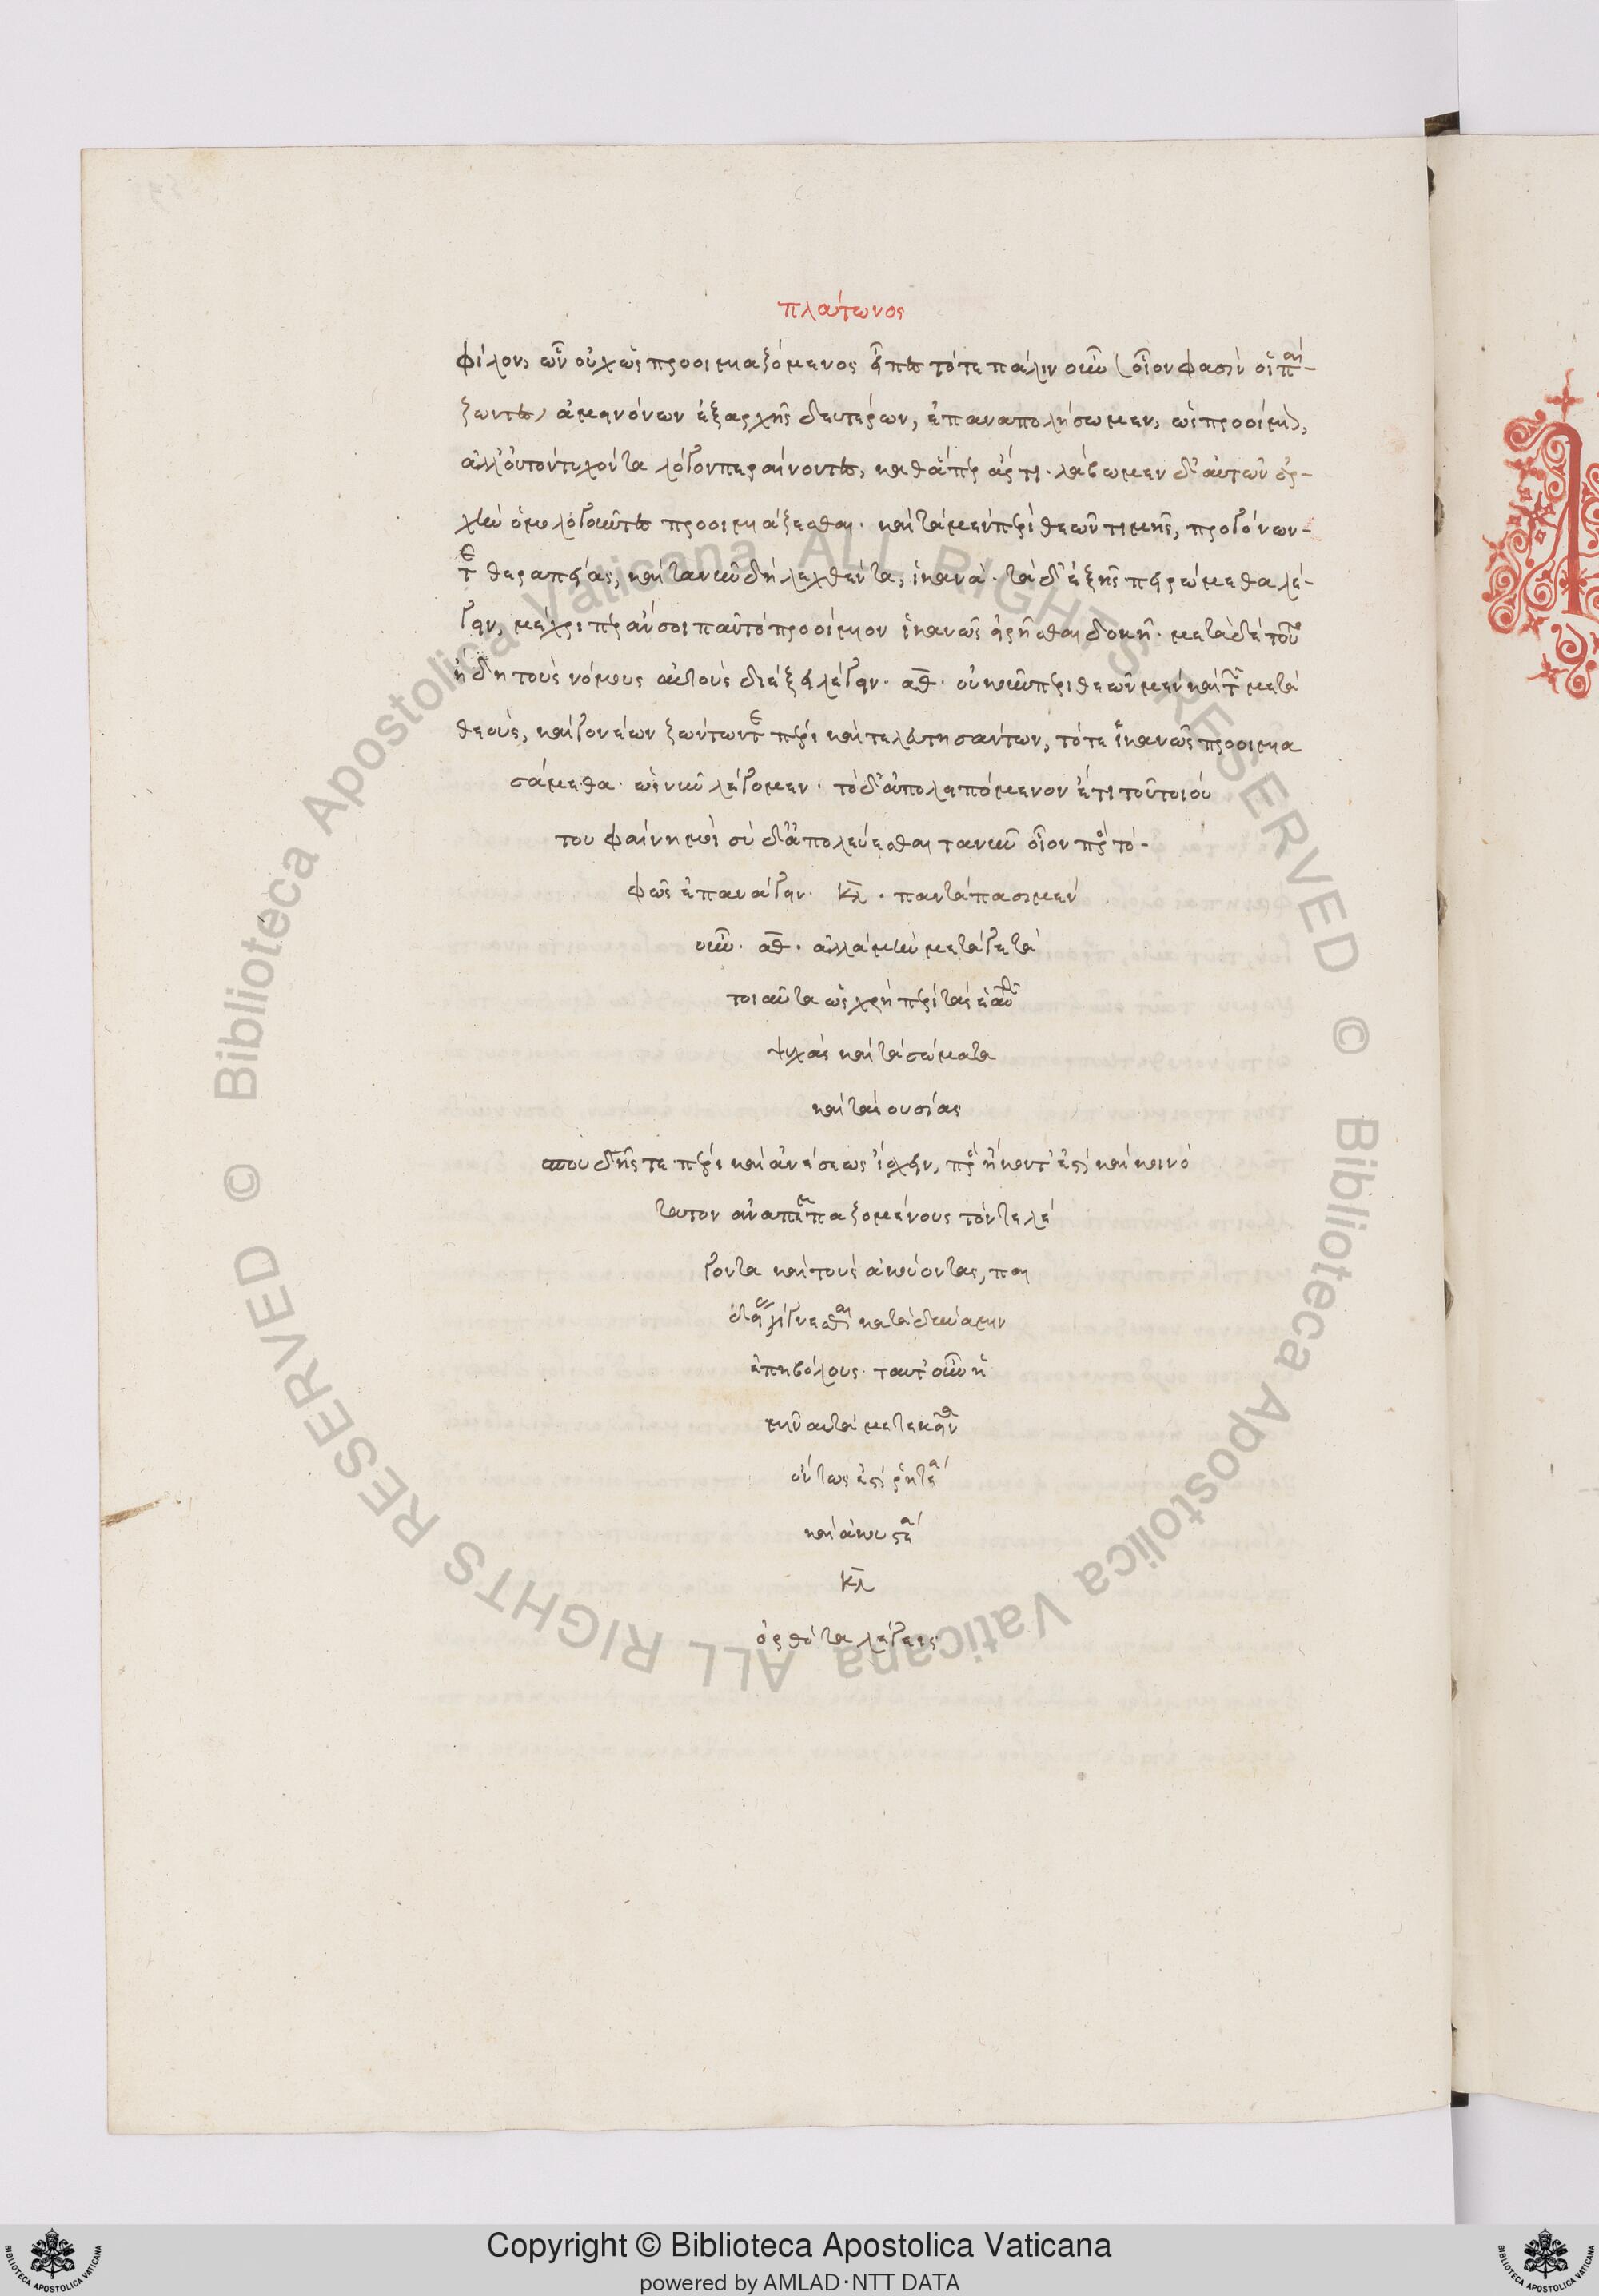 πλάτωνος
φίλον, ὧν οὐχ ὡς προοιμιαζόμενος εἶπες τότε πάλιν οὖν (οἷον φασὶν οἱ παί-
ζοντες) ἀμεινόνων ἐξ ἀρχῆς δευτέρων, ἐπαναπολήσωμεν, ὡς προοίμιον,
ἀλλ' οὐ τὸν τυχόντα λόγον περαίνοντες, καθάπερ ἄρτι. λάβωμεν δ' αὐτῶν ἀρ-
χὴν ὁμολογοῦντες προοιμιάζεσθαι. καὶ τὰ μὲν περὶ θεῶν τιμῆς, προγόνων-
τε θεραπείας, καὶ τὰ νῦν δὴ λεχθέντα, ἱκανά. τὰ δ' ἑξῆς πειρώμεθα λέ-
γειν, μέχριπερ ἄν σοι πᾶν τὸ προοίμιον ἱκανῶς εἰρῆσθαι δοκῇ. μετὰ δὲ τοῦτο
ἤδη τοὺς νόμους αὐτοὺς διέξει λέγειν. αθ. οὐκοῦν περὶ θεῶν μὲν καὶ τῶν μετὰ
θεούς, καὶ γονέων ζώντων τε πέρι καὶ τελευτησάντων, τότε ἱκανῶς προοιμια
σάμεθα. ὡς νῦν λέγομεν. τὸ δ' ἀπολειπόμενον ἔτι τοῦ τοιού
του φαίνῃ μοι σὺ διαπολεύεσθαι τανῦν οἷον πρὸς τὸ-
φῶς ἐπανάγειν. κλ. παντάπασι μὲν
οὖν. αθ. ἀλλὰ μὴν μετά γε τὰ
τοιαῦτα ὡς χρὴ περὶ τὰς ἑαυτῶν
ψυχὰς καὶ τὰ σώματα
καὶ τὰς ουσίας
σπουδῆς τε πέρι καὶ ἀνέσεως ἴσχειν, προσῆκόντ' ἐστὶ καὶ κοινό
τατον ἀναπεμπαζομένους τόν τε λέ
γοντα καὶ τοὺς ἀκούοντας, παι
δείας γίγνεσθαι κατὰ δύναμιν
ἐπηβόλους. ταῦτ' οὖν ἡ
μῖν αὐτὰ μετ' ἐκεῖνα
ὄντως ἐστὶ ῥητέα
καὶ ἀκουστέα
κλ
ὀρθότατα λέγεις